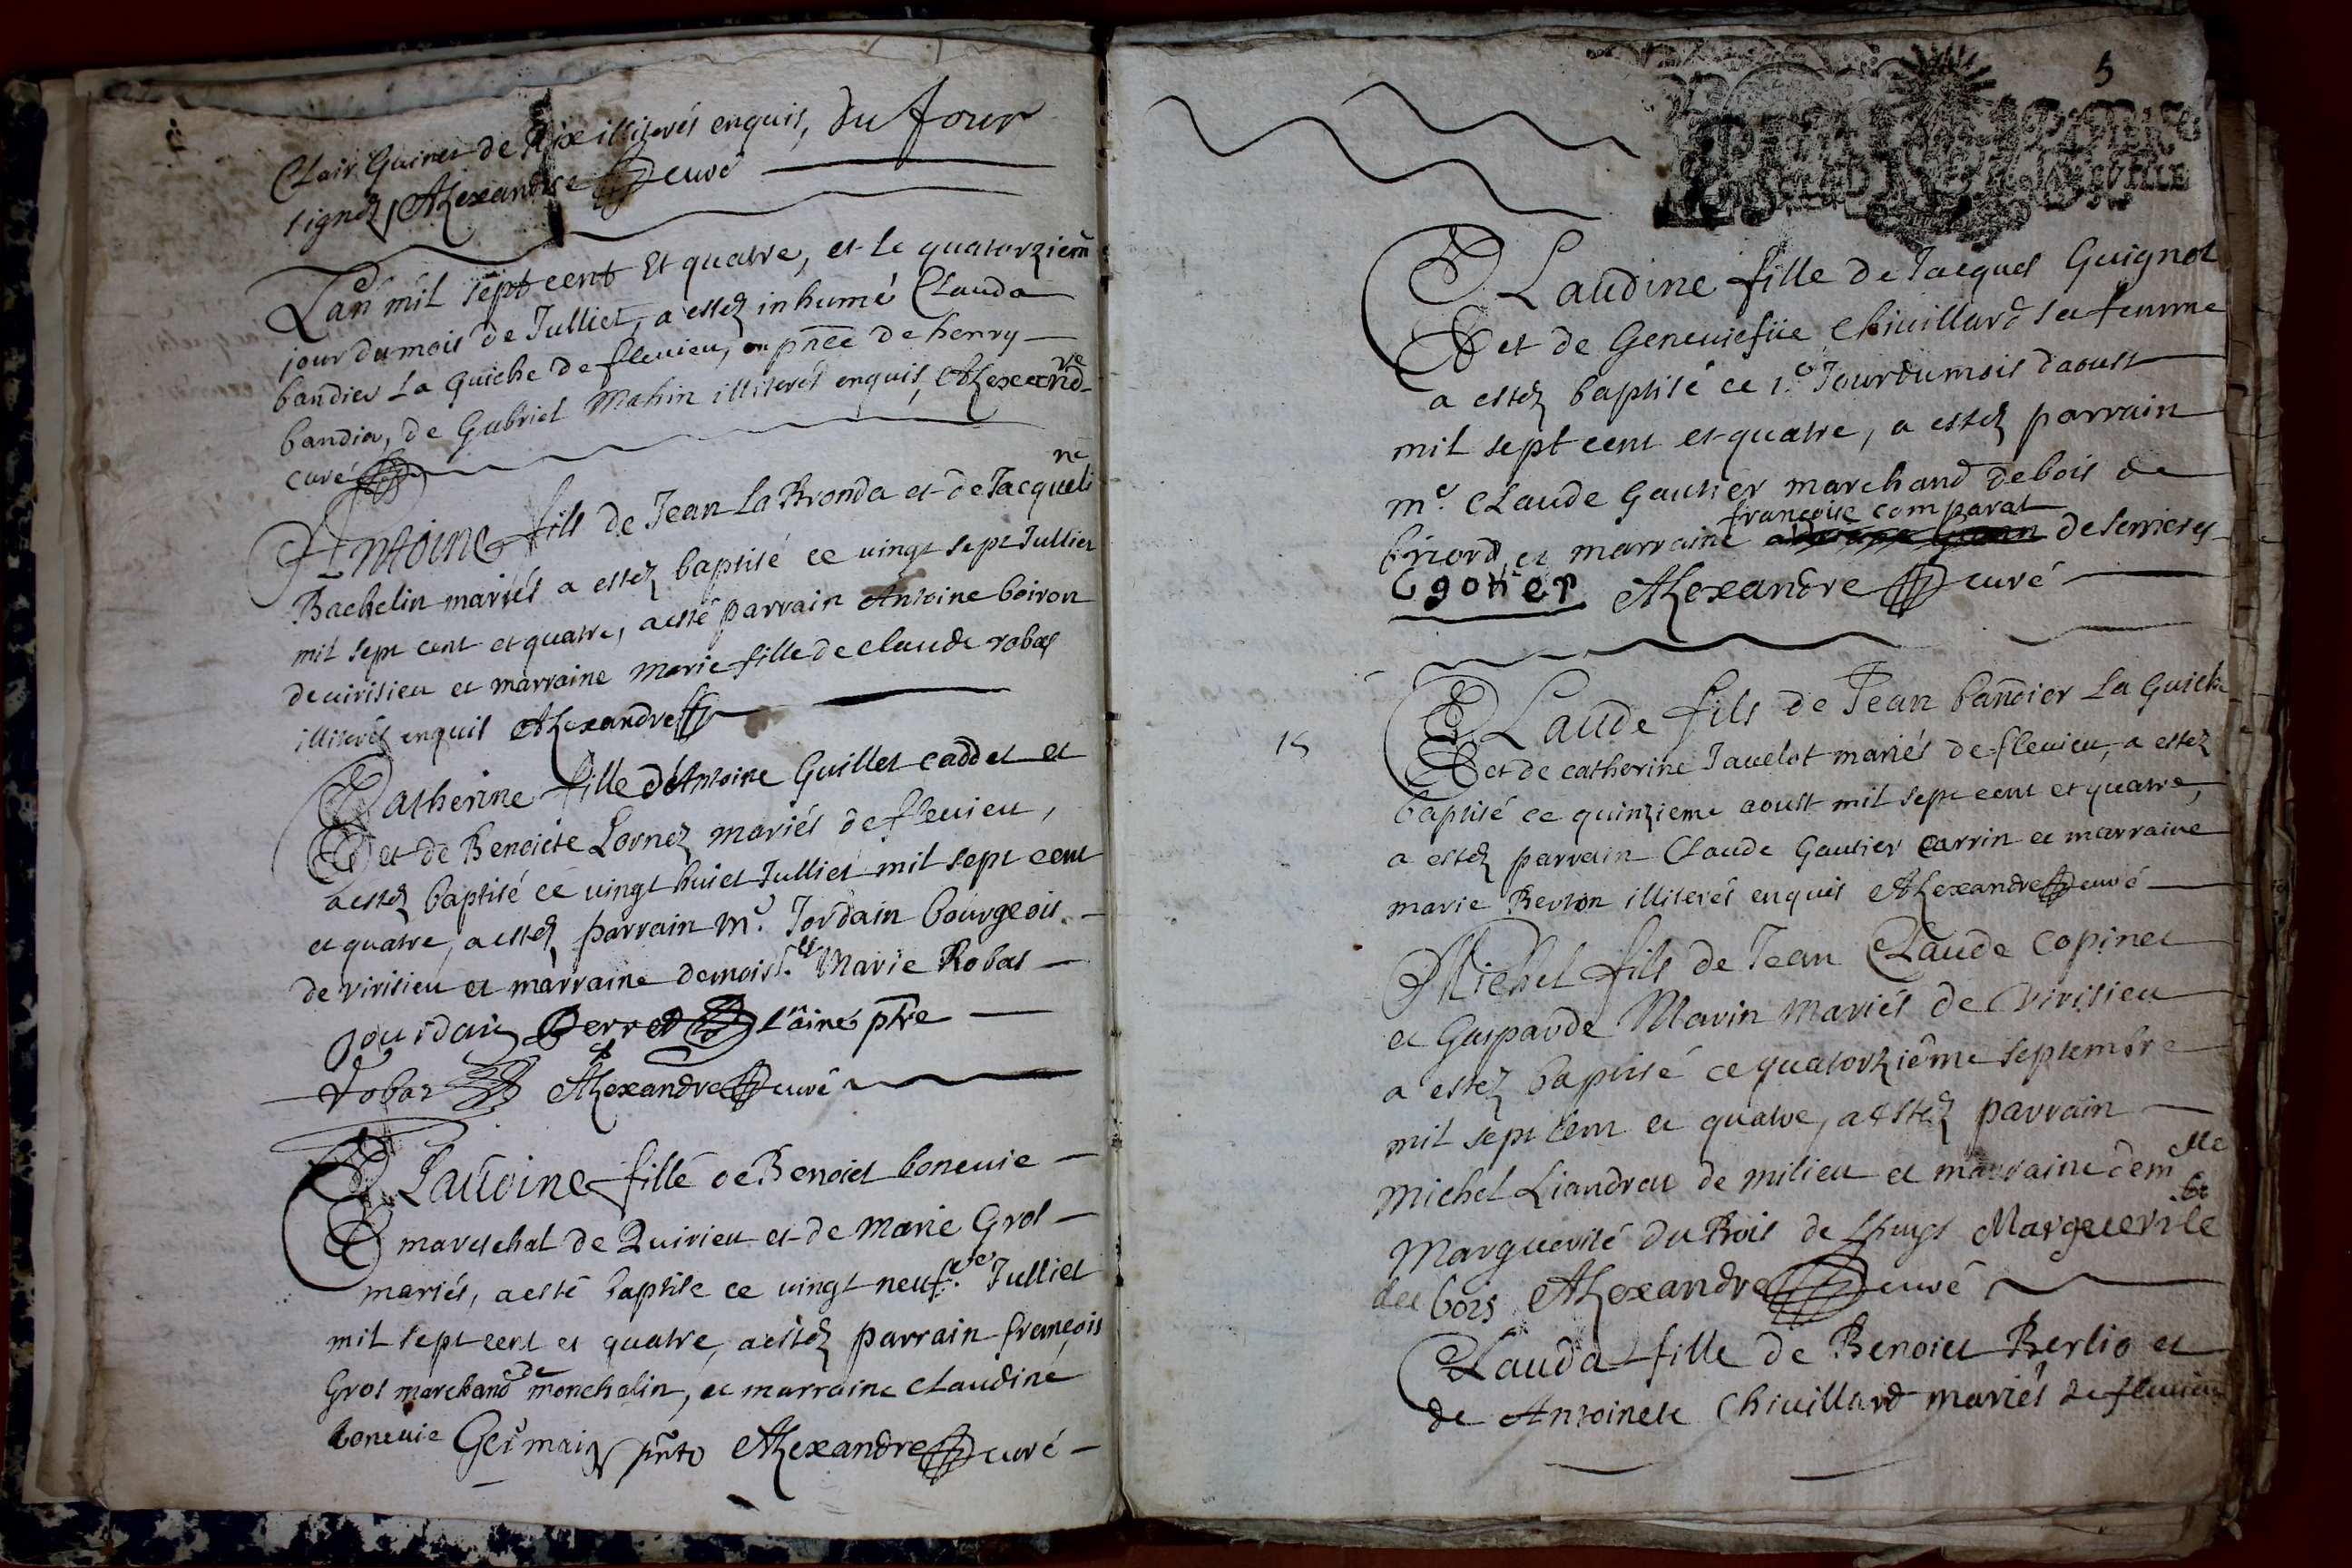 Clair Guinet de Rix illiterés enquis, du four
signez Alexandre curé
Lan mil sept cent Et quatre, et le quatorziem
jour du mois de Julliet, a estez inhumé Clauda
bandier La Guiche de flevieu, en pnce de henry
bandier, de Gabriel Mahin illiteres enquis, Alexandre
curé
Antoine fils de Jean La Bronda et de Jacqueline
Bachelin mariés a estez baptisé ce vingt sept Julliet
mil sept cent et quatre, a esté parrain Antoine boiron
de virisieu et marraine marie fille de claude robas
illiterés enquis Alexandre
Catherine fille d'Antoine Guillet caddet et
et de Benoicte Lornez mariés de flevieu,
a estez baptisé ce vingt huict Julliet mil sept cent
et quatre, a estez parrain mr. Jordain bourgeois
de virisieu et marraine demoislle. Marie Robas
Jourdain Perret L'ainé ptre
Robas Alexandre curé
Claudine fille de Benoict bonevie
mareschal de Quirieu et de marie Gros
mariés, a esté baptisé ce vingt neufve. Julliet
mil sept cent et quatre, a estez parrain françois
Gros marchand de monchalin, et marraine claudine
bonevie Germain pnts Alexandre curé
5
Claudine fille de Jacques Guignot
et de Geneviefve Chivillard sa femme
a estez baptisé ce 1e. Jour du mois daoust
mil sept cent et quatre, a estez parrain
mr. Claude Gautier marchand de bois de
françoise comparat
briord, et marraine de serrieres
C gotier Alexandre curé
15
Claude fils de Jean bandier La Guiche
et de catherine Javelot mariés de flevieu, a estez
baptisé ce quinzieme aoust mil sept cent et quatre,
a estez parrain Claude Gautier carrin et marraine
marie Berton illiterés enquis Alexandre curé
Michel fils de Jean Claude Copinet
et Gasparde Marin Mariés de virisieu
a estez baptisé ce quatorzième septembre
mil sept cent et quatre, a estez parrain
Michel Liandrau de milieu et marraine demlle
Marguerite du Bois de Lhuys Marguerite
des bois Alexandre curé
Clauda fille de Benoict Berlio et
de Antoinete Chivillard mariés de flevieu